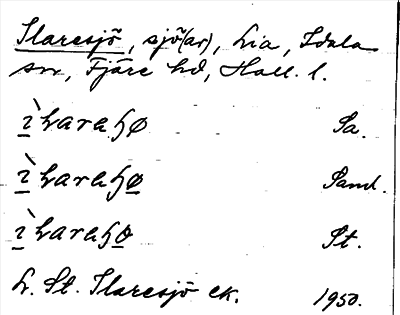 Ilaresjö, sjö(ar), Lia, Idala
sn, Fjäre hd, Hall. l.
ìlaraɧø Sa.
ìlaraɧø Sand.
ìlaraɧø St.
L. St. Ilaresjö ek. 1950.